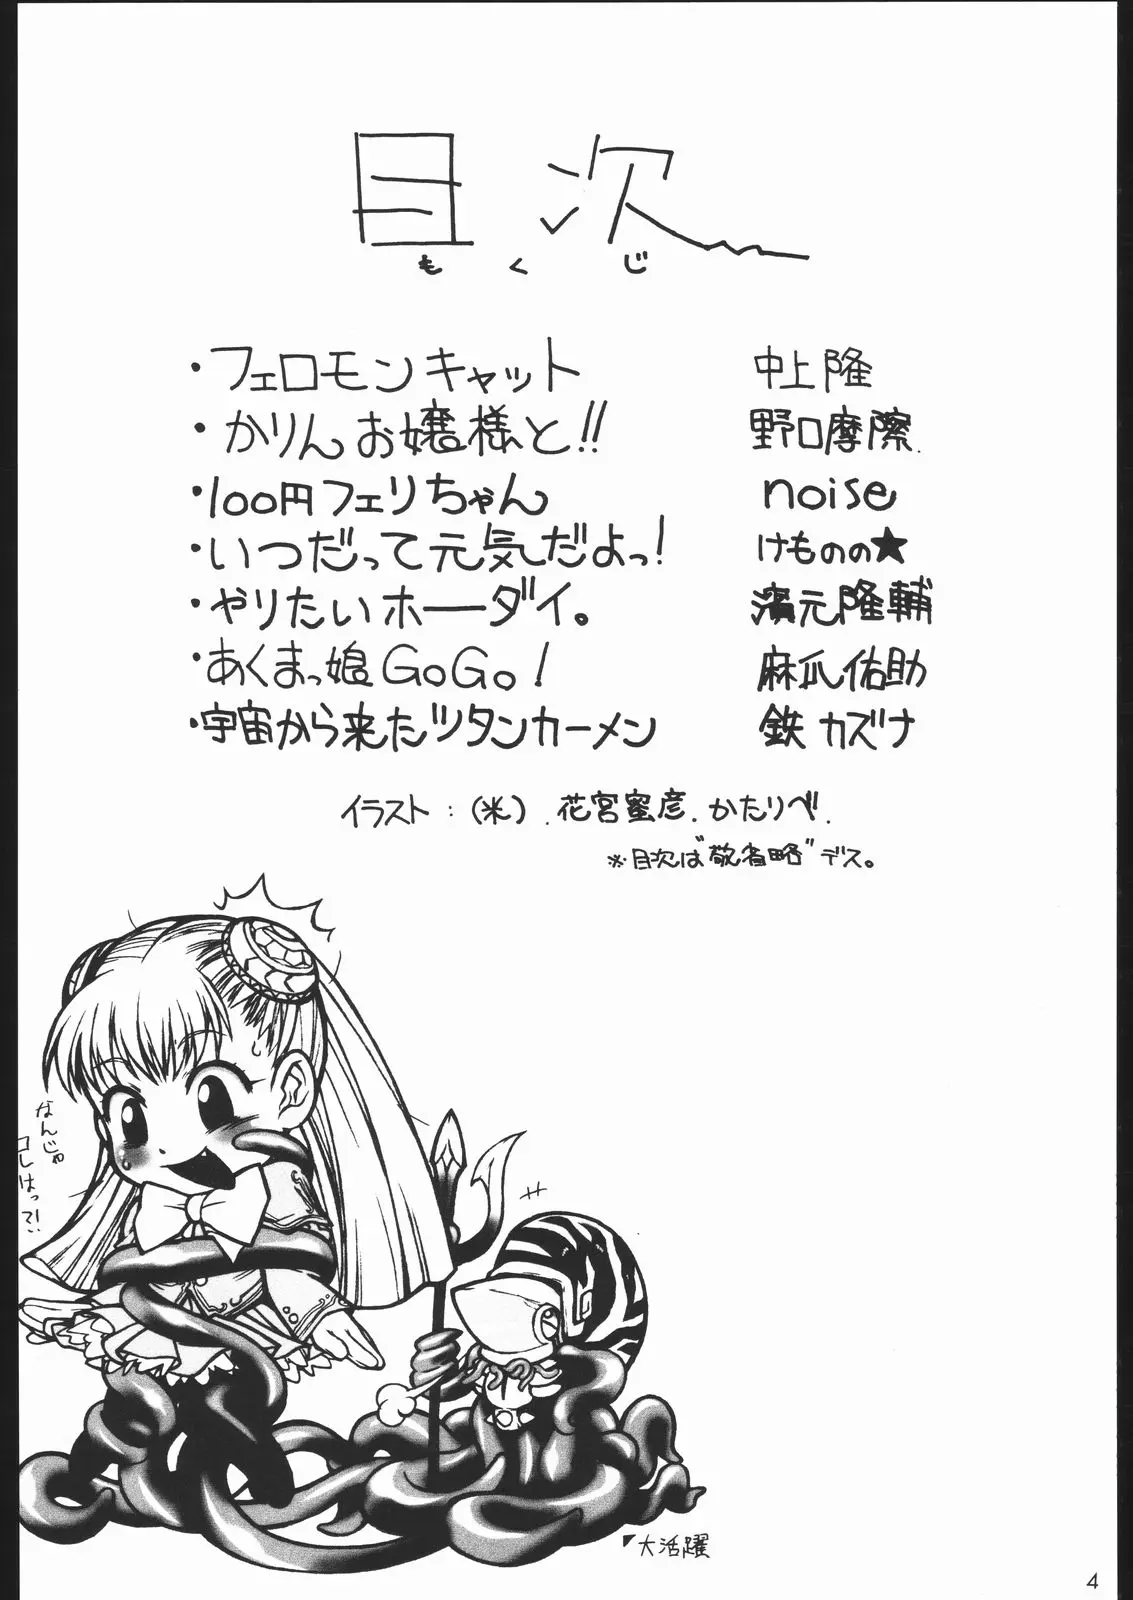 目次
もくじ
・フェロモンキャット 中上隆
・かりんお嬢様と!! 野口摩擦.
・100円フェリちゃん noise
・いつだって元気だよっ! けものの★
・やりたいホーダイ。 濱元隆輔
・あくまっ娘GoGo! 麻瓜佑助
・宇宙から来たツタンカーメン 鉄カズナ
イラスト:(米).花宮蜜彦.かたりべ.
※目次は"敬省略"デス。
なんじゃ
コレはって!!
大活躍
4